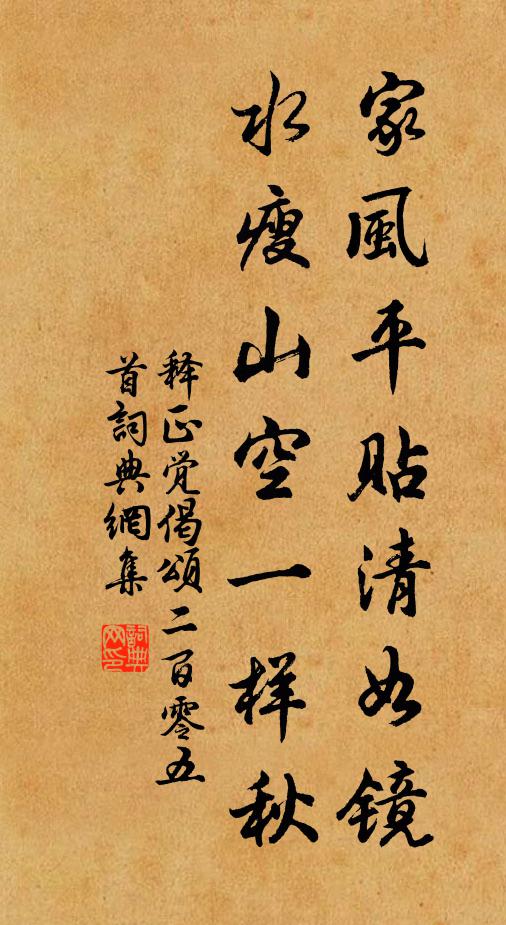 家風平貼清如镜
水瘦山空一样秋
释正觉偈頌二百零五
首詞典網集
詞典
网印